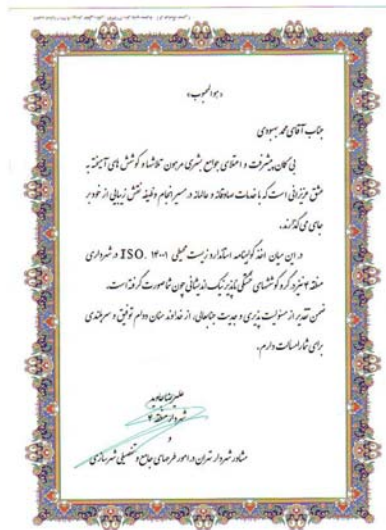 «هو المحبوب»
جناب آقای محمد بهبودی
بی گمان پیشرفت و اعتلای جوامع بشری مرهون تلاشها و کوشش های آمیخته به
عشق عزیزانی است که با خدمات صادقانه و عالمانه در مسیر انجام وظیفه نقش زیبایی از خود بر
جای می گذارند.
در این میان اخذ گواهینامه استاندارد زیست محیطی ISO. ۱۴۰۰۱ در شهرداری
منطقه ۴ نیز در گرو کوششهای خستگی ناپذیر نیک اندیشانی چون شما صورت گرفته است.
ضمن تقدیر از مسئولیت پذیری و جدیت جنابعالی، از خداوند منان دوام توفیق و سربلندی
برای شما را مسالت دارم.
علیرضا جاوید
شهردار منطقه ۴
و
مشاور شهردار تهران در امور طرحهای جامع و تفصیلی شهرسازی